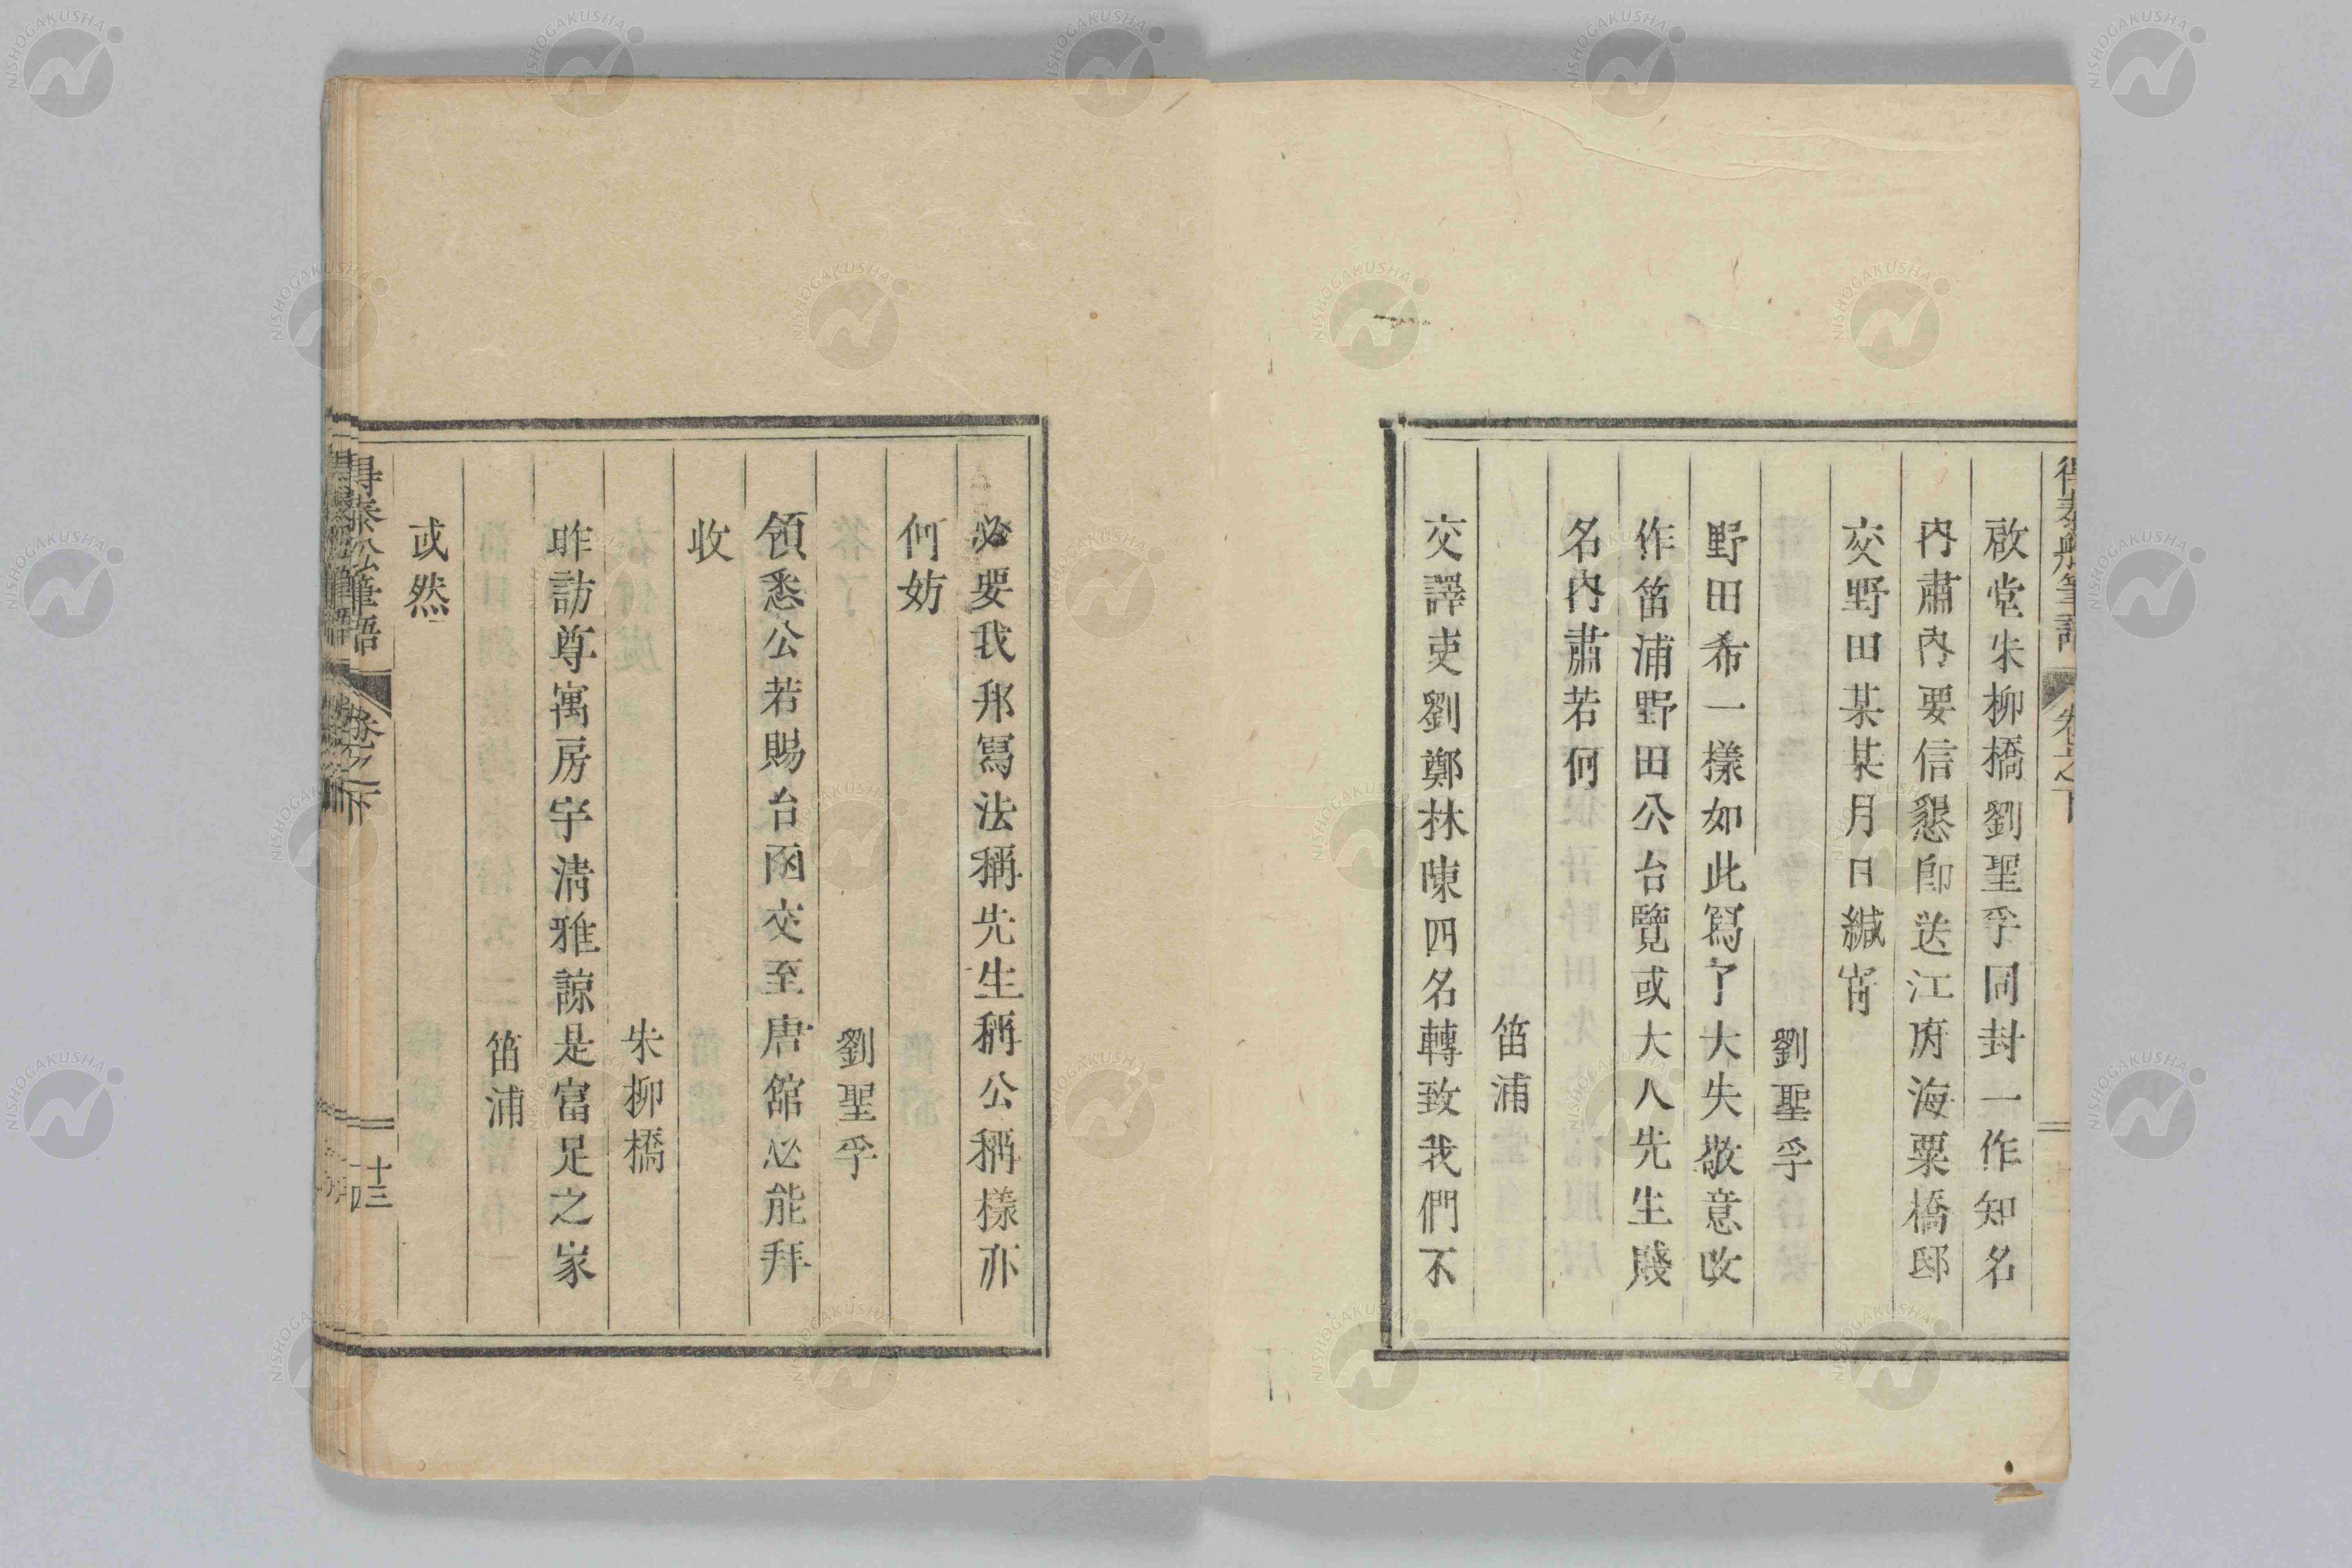 啟堂朱柳橋劉聖孚同封一作知名
內肅內要信懇卽送江府海粟橋邸
交野田某某月日緘寄
劉聖孚
野田希一樣如此寫了大失敬意改
作笛浦野田公台覽或大人先生賤
名內肅若何
笛浦
交譯吏劉鄭林陳四名轉致我們不
必要我邦寫法稱先生稱公稱樣亦
何妨
劉聖孚
領悉公若賜台函交至唐館必能拜
收
朱柳橋
昨訪尊寓房宇清雅諒是富足之家
笛浦
或然
得泰船筆語
卷之下
十三
NISHOGAKUSHA